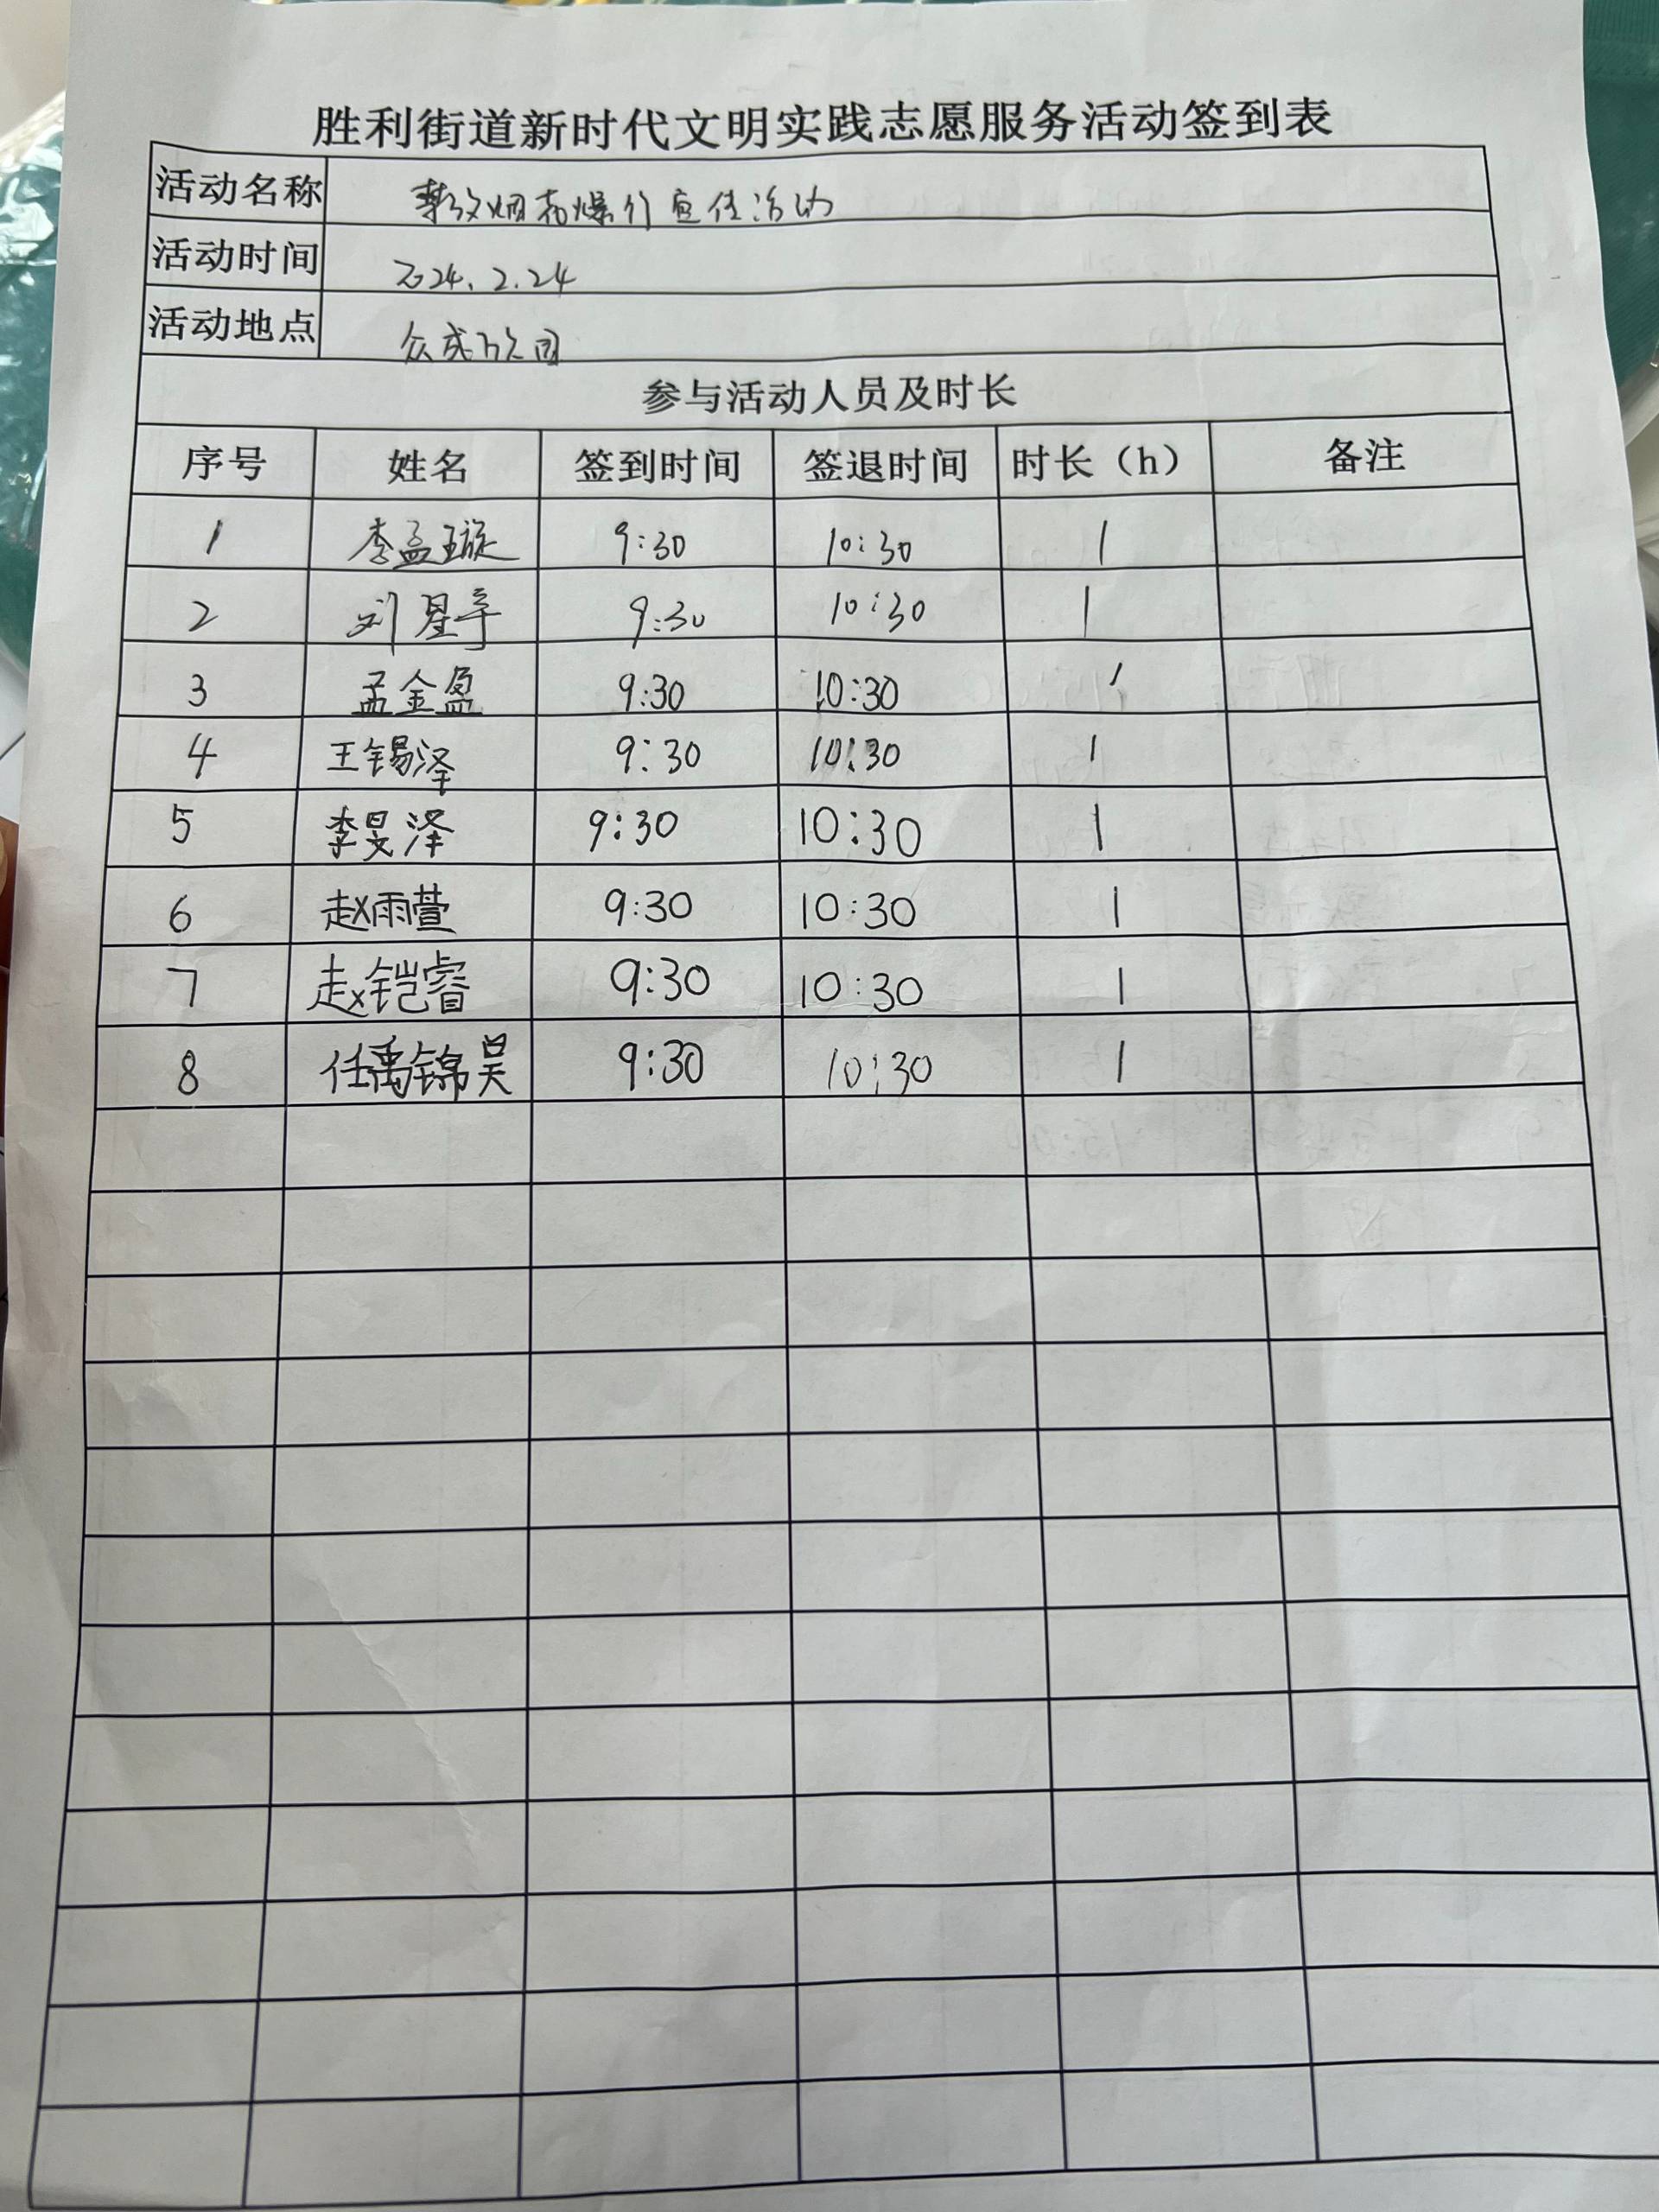 胜利街道新时代文明实践志愿服务活动签到表
活动名称 禁放烟花爆竹宣传活动
活动时间 2024.2.24
活动地点 众成
参与活动人员及时长
序号 姓名 签到时间 签退时间 时长（h） 备注
1 李孟璇 9:30 10:30 1
2 刘星宇 9:30 10:30 1
3 孟金盈 9:30 10:30 1
4 王锡泽 9:30 10:30 1
5 李旻泽 9:30 10:30 1
6 赵雨萱 9:30 10:30 1
7 赵铠睿 9:30 10:30 1
8 任禹锦昊 9:30 10:30 1